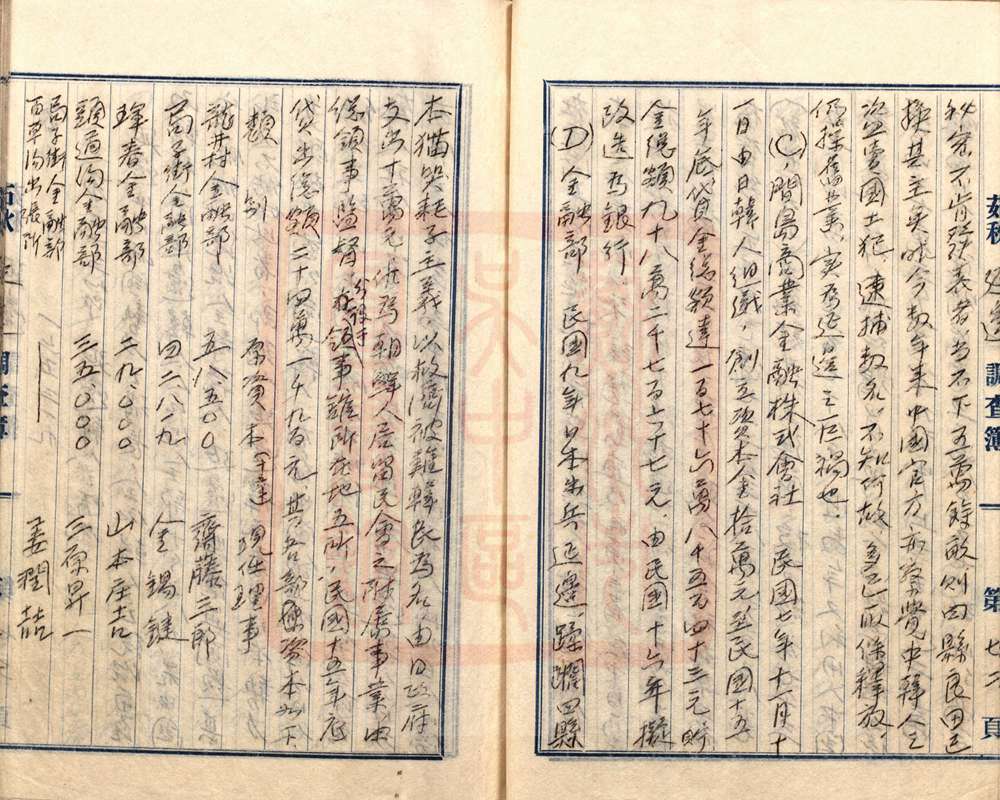 延邊調查簿 第七 頁
秘密不肯發表者尚不下五萬餘畝則四縣良田已
換其主矣 今數年來中國官方 察覺中韓人之
盜賣國土犯逮捕數名不知何故多已取保釋放
仍操舊業實為延邊之巨禍也
(C)間島商業金融株式會社 民國七年十二月十
一日由日韓人組織創立資本金拾萬元至民國十五
年底貸金總額達一百七十六萬八千五元四十三元貯
金總額九十八萬二千七百六十七元由民國十六年擬
改造為銀行
(D)金融部 民國九年日本出兵延邊蹂躪四縣
本猫哭耗子主義以救濟被難韓民為名由日政府
支出十萬元 作為朝鮮人居留民會之附屬事業由
總領事監督 分設於 在領事館所在地五所民國十五年底
貸出總額二十四萬一千九百元其各部 資本如下
類別 原資本(十五年) 現任理事
龍井村金融部 五八五〇〇 齋藤三郎
局子街金融部 四二八一九 金錫鍵
琿春金融部 二九、〇〇〇 山本庄吉
頭道溝金融部 三五、〇〇〇 三原昇一
局子街金融部
百草溝出張所 姜潤喆
調查簿